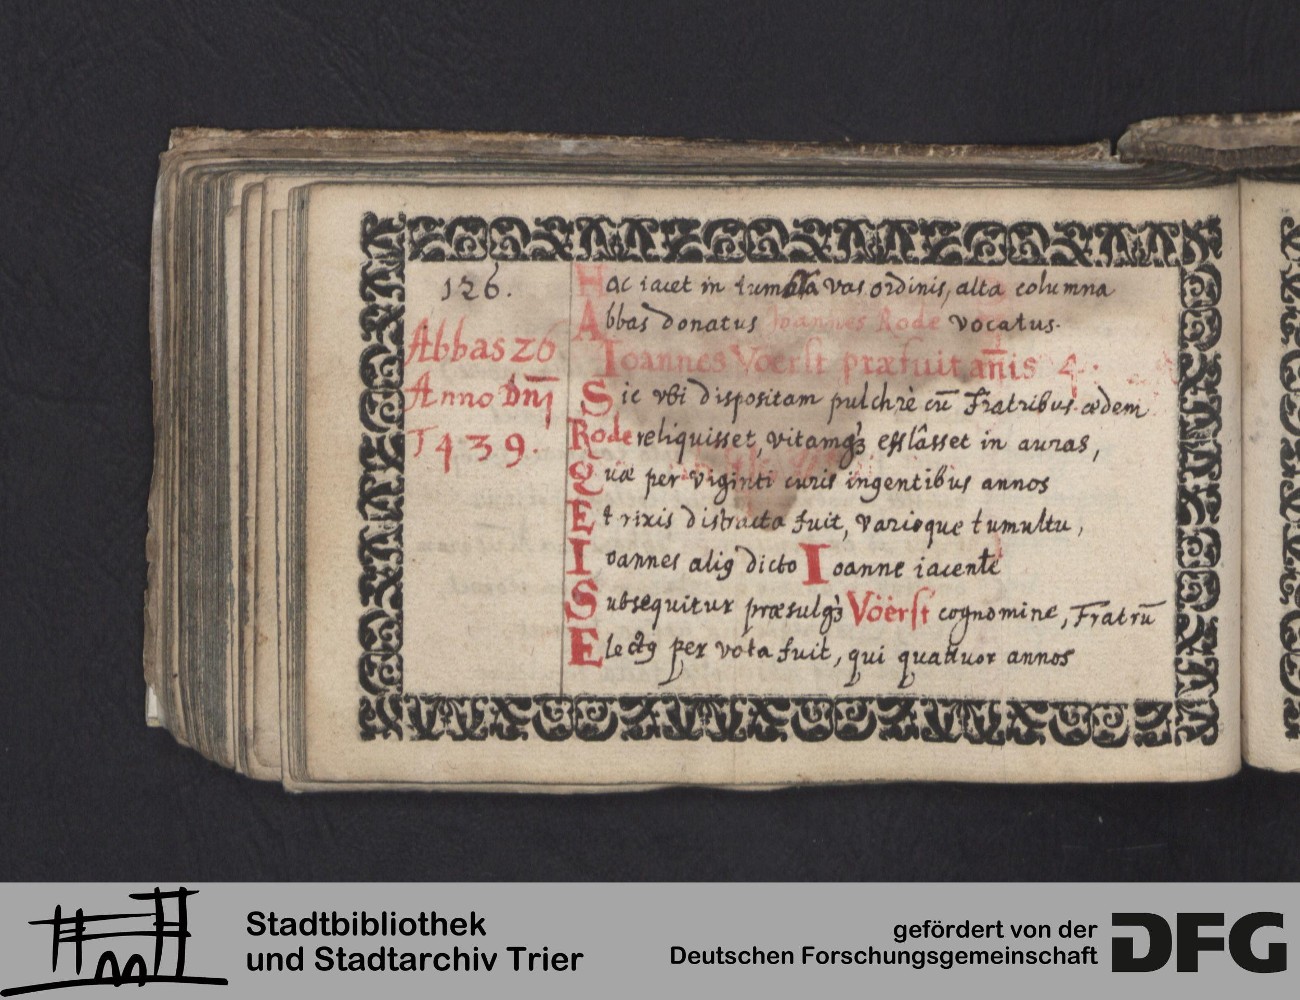 126.
Abbas 26
Anno Dn̄j
1439.
Hac iacet in tumba vas ordinis, alta columna
Abbas donatus Joannes Rode vocatus.
Ioannes Vöerst præfuit an̄is 4.
Sic vbi dispositam pulchrè cū Fratribus ædem
Rode reliquisset, vitamqꝫ efflâsset in auras,
Quæ per viginti curis ingentibus annos
Et rixis distracta fuit, varioque tumultu,
Ioannes aliꝰ dicto Ioanne iacente
Subsequitur præsulqꝫ Vöerst cognomine, Fratrū
Electꝰ per vota fuit, qui quatuor annos
Stadtbibliothek
und Stadtarchiv Trier
gefördert von der
Deutschen Forschungsgemeinschaft
DFG